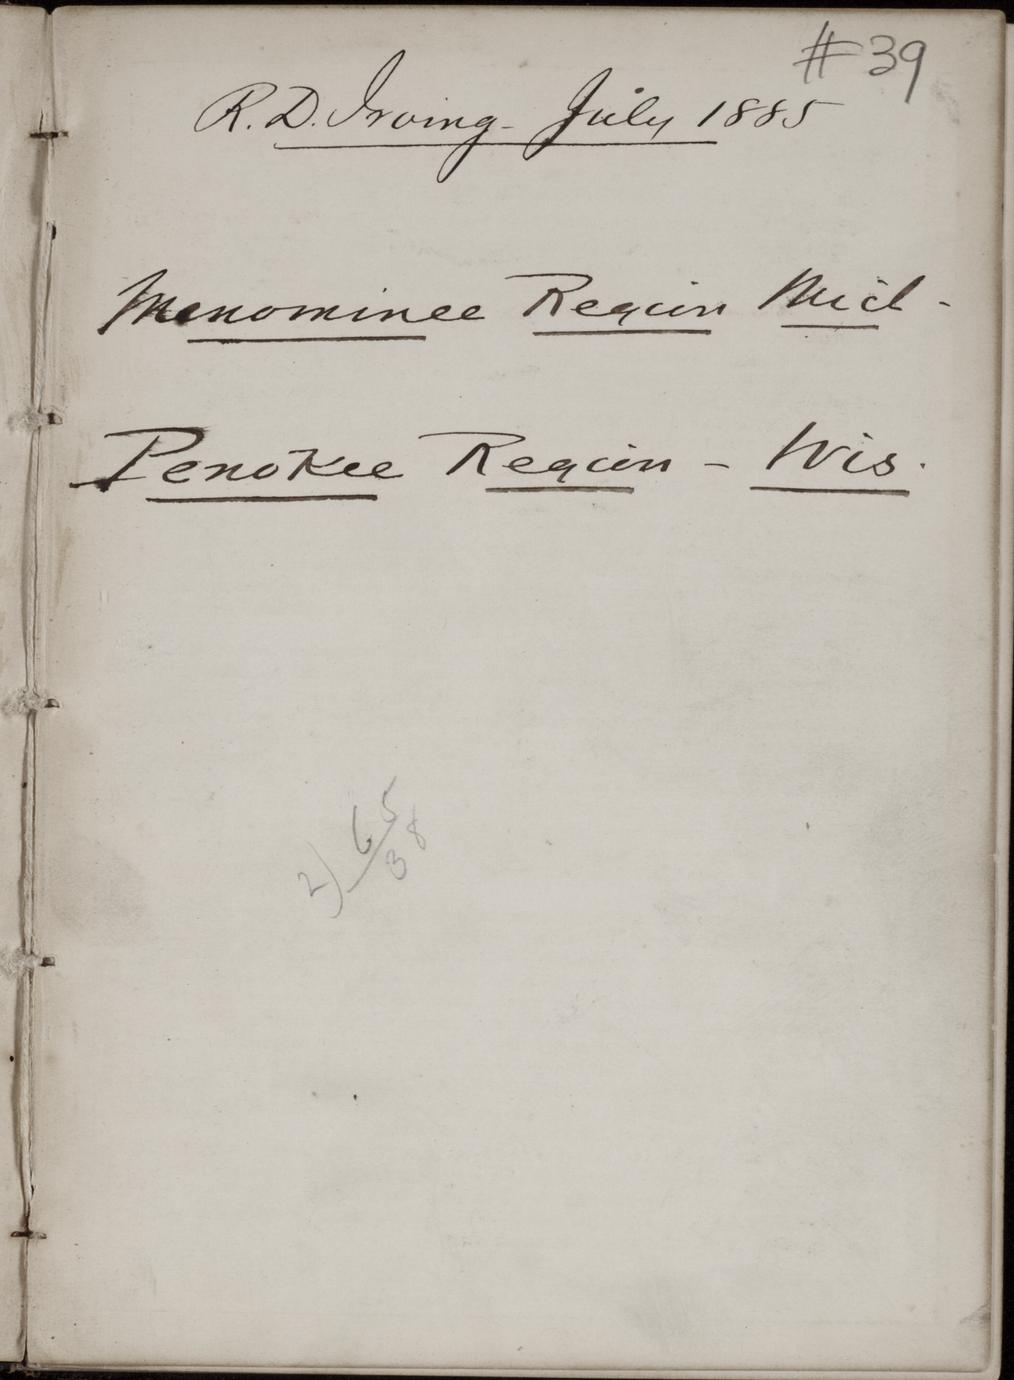 #39
R. D. Irving - July 1885
Menominee Region Mich -
Penokee Region - Wis.
2) 65
38